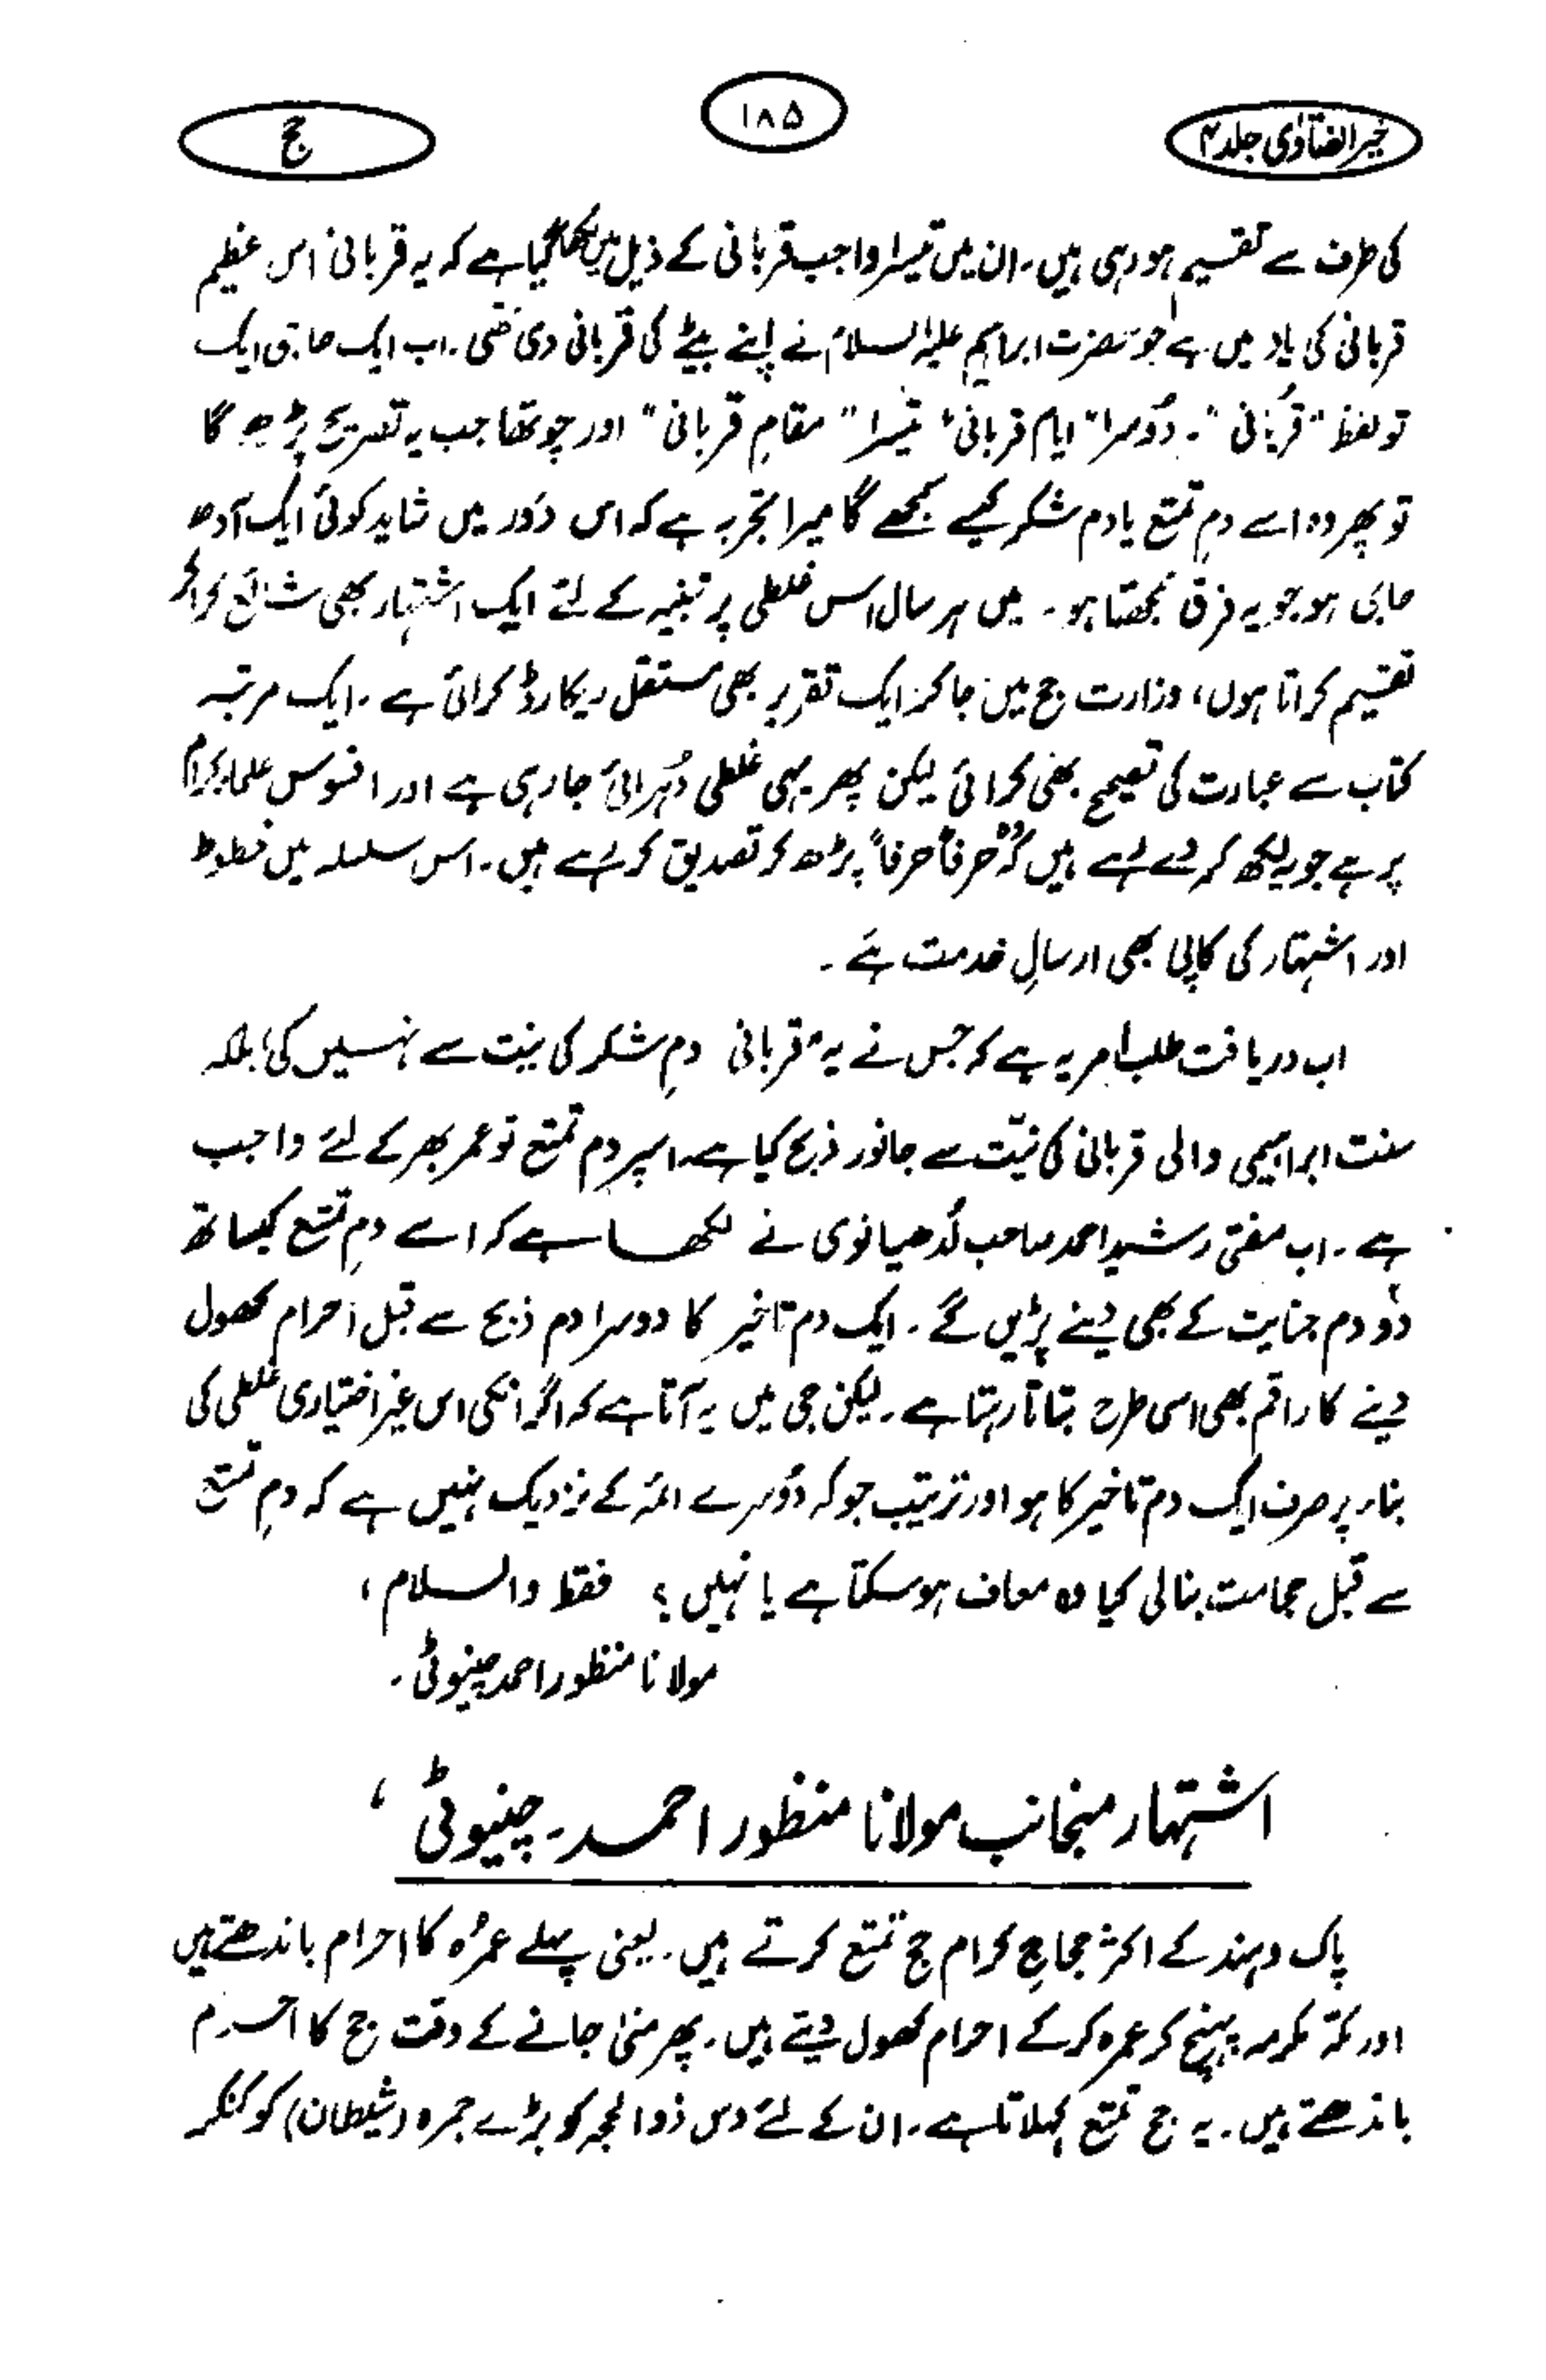 خیر الفتاوٰی جلد ۴
۱۸۵
حج
کی طرف سے تقسیم ہو رہی ہیں۔ ان میں تیسرا واجب قربانی کے ذیل میں لکھا گیا ہے کہ یہ قربانی اس عظیم
قربانی کی یاد میں ہے جو حضرت ابراہیم علیہ السلام نے اپنے بیٹے کی قربانی دی تھی۔ اب ایک حاجی ایک
تو لفظ "قربانی"۔ دوسرا "ایام قربانی" تیسرا "مقامِ قربانی" اور چوتھا جب یہ تصریح پڑھے گا
تو پھر وہ اسے دمِ تمتع یا دم شکر کیسے سمجھے گا میرا تجربہ ہے کہ اس دَور میں شاید کوئی ایک آدھ
حاجی ہو جو یہ فرق سمجھتا ہو۔ میں ہر سال اس غلطی پر تنبیہ کے لئے ایک اشتہار بھی شائع کرا کر
تقسیم کراتا ہوں، وزارت حج میں جا کر ایک تقریر بھی مستقل ریکارڈ کرائی ہے۔ ایک مرتبہ
کتاب سے عبارت کی تصحیح بھی کرائی لیکن پھر یہی غلطی دُہرائی جا رہی ہے اور افسوس علماء کرام
پر ہے جو یہ لکھ کر دے رہے ہیں کہ حرفاً حرفاً پڑھ کر تصدیق کر رہے ہیں۔ اس سلسلہ میں خطوط
اور اشتہار کی کاپی بھی ارسالِ خدمت ہے۔
اب دریافت طلب امر یہ ہے کہ جس نے یہ قربانی دمِ شکر کی نیت سے نہیں کی بلکہ
سنت ابراہیمی والی قربانی کی نیّت سے جانور ذبح کیا ہے۔ اسپر دم تمتع تو عمر بھر کے لئے واجب
ہے۔ اب مفتی رشید احمد صاحب لُدھیانوی نے لکھا ہے کہ اسے دمِ تمتع کیساتھ
دو دم جنایت کے بھی دینے پڑیں گے۔ ایک دم تاخیر کا دوسرا دم ذبح سے قبل احرام کھول
دینے کا راقم بھی اسی طرح بتاتا رہتا ہے۔ لیکن جی میں یہ آتا ہے کہ اگر انکی اس غیر اختیاری غلطی کی
بناء پر صرف ایک دم تاخیر کا ہو اور ترتیب جو کہ دوسرے ائمہ کے نزدیک نہیں ہے کہ دمِ تمتع
سے قبل حجامت بنالی کیا وہ معاف ہو سکتا ہے یا نہیں؟ فقط والسلام،
مولانا منظور احمد چنیوٹی۔
اشتہار منجانب مولانا منظور احمد۔ چنیوٹی،
پاک و ہند کے اکثر حجاجِ کرام حج تمتع کرتے ہیں۔ یعنی پہلے عمرُہ کا احرام باندھتے ہیں
اور مکہ مکرمہ پہنچ کر عمرہ کر کے احرام کھول دیتے ہیں۔ پھر منیٰ جانے کے وقت حج کا احرم
باندھتے ہیں۔ یہ حج تمتع کہلاتا ہے۔ ان کے لئے دس ذوالحجہ کو بڑے جمرہ (شیطان) کو کنکر